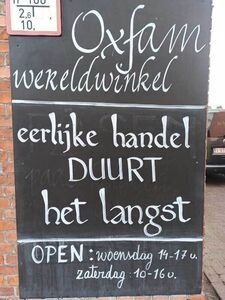 H 100
2,8
10.
Oxfam
wereldwinkel
eerlijke handel
DUURT
het langst
OPEN: woensdag 14-17 u.
zaterdag: 10-16 u.